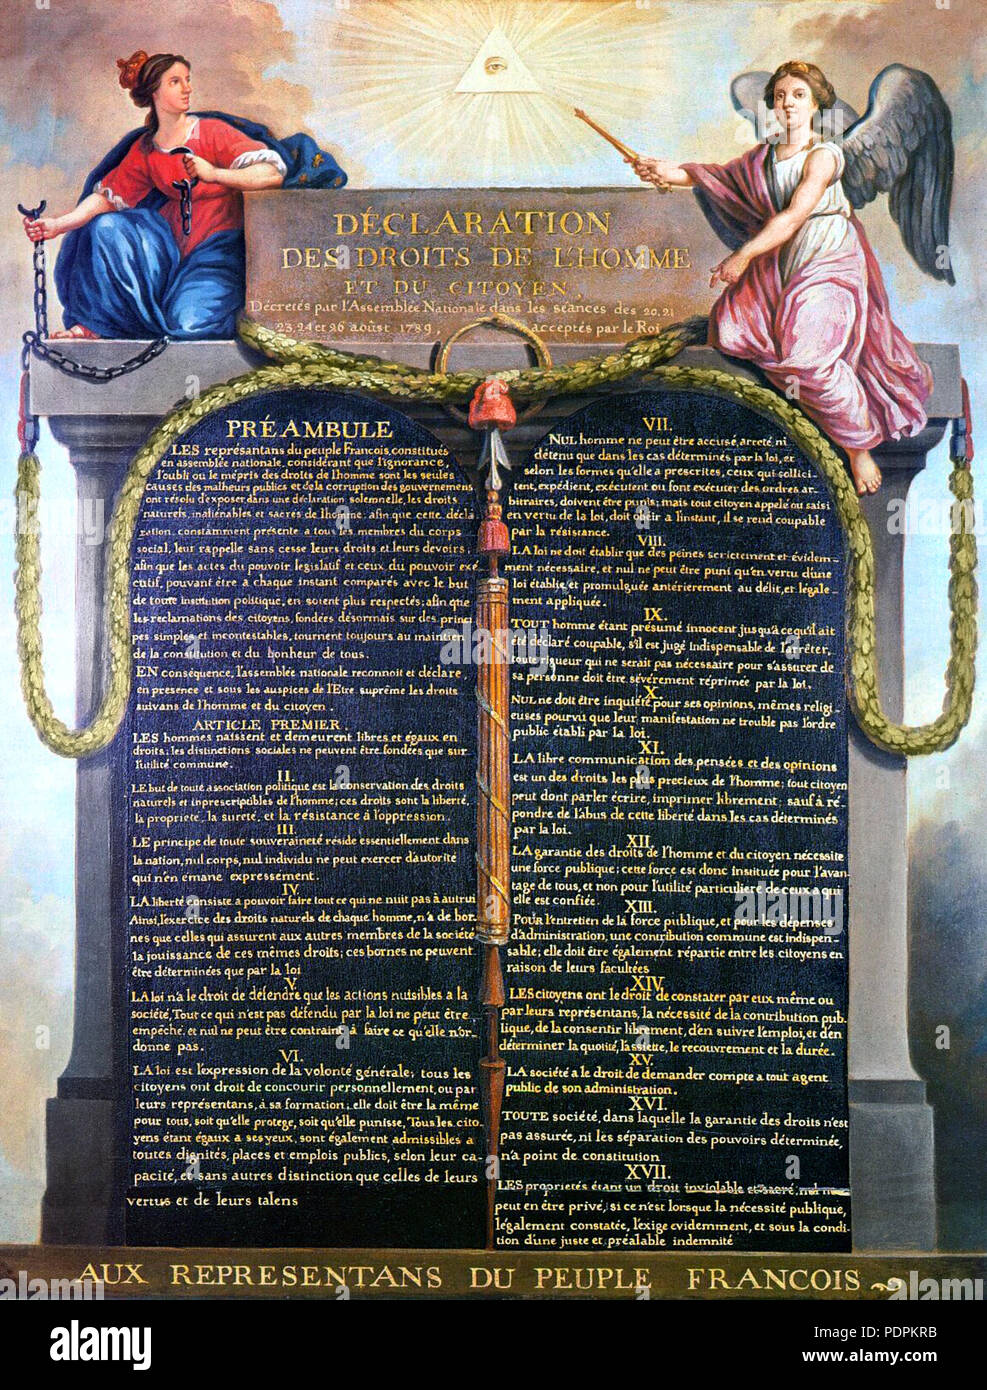 DÉCLARATION
DES DROITS DE L'HOMME
ET DU CITOYEN,
Décretés par l'Assemblée Nationale dans les séances des 20. 21
23. 24 et 26 aoûst 1789, acceptés par le Roi
PRÉAMBULE
LES représantans du peuple Francois, constitués
en assemblée nationale, considérant que l'ignorance,
l'oubli ou le mépris des droits de l'homme sont les seules
causes des malheurs publics et de la corruption des gouvernemens
ont résolu d'exposer, dans une déclaration solemnelle, les droits
naturels, inaliénables et sacrés de l'homme; afin que cette décla
ration, constamment présente à tous les membres du corps
social, leur rappelle sans cesse leurs droits et leurs devoirs,
afin que les actes du pouvoir législatif et ceux du pouvoir exé
cutif, pouvant être à chaque instant comparés avec le but
de toute institution politique, en soient plus respectés; afin que
les reclamations des citoyens, fondées désormais sur des princi
pes simples et incontestables, tournent toujours au maintien
de la constitution et du bonheur de tous.
EN conséquence, l'assemblée nationale reconnoit et déclare
en presence et sous les auspices de l'Etre suprême les droits
suivans de l'homme et du citoyen.
ARTICLE PREMIER.
LES hommes naissent et demeurent libres et égaux en
droits; les distinctions sociales ne peuvent être fondées que sur
l'utilité commune.
II.
LE but de toute association politique est la conservation des droits
naturels et inprescriptibles de l'homme; ces droits sont la liberté,
la proprieté, la sureté, et la résistance à l'oppression.
III.
LE principe de toute souveraineté réside essentiellement dans
la nation, nul corps, nul individu ne peut exercer d'autorité
qui n'en émane expressement.
IV.
LA liberté consiste a pouvoir faire tout ce qui ne nuit pas à autrui
Ainsi, l'exercice des droits naturels de chaque homme, n'a de bor-
nes que celles qui assurent aux autres membres de la société
la jouissance de ces mêmes droits; ces bornes ne peuvent
être déterminées que par la loi
V.
LA loi n'a le droit de défendre que les actions nuisibles a la
société, Tout ce qui n'est pas défendu par la loi ne peut être
empêché, et nul ne peut être contraint à faire ce qu'elle n'or-
donne pas.
VI.
LA loi est l'expression de la volonté générale; tous les
citoyens ont droit de concourir personnellement, ou par
leurs représentans, à sa formation; elle doit être la même
pour tous, soit qu'elle protege, soit qu'elle punisse, Tous les cito-
yens étant égaux a ses yeux, sont également admissibles à
toutes dignités, places et emplois publics, selon leur ca-
pacité, et sans autres distinction que celles de leurs
vertus et de leurs talens
VII.
NUL homme ne peut être accusé, arreté, ni
détenu que dans les cas déterminés par la loi, et
selon les formes qu'elle a prescrites, ceux qui sollici-
tent, expédient, exécutent ou font exécuter des ordres ar-
bitraires, doivent être punis; mais tout citoyen appelé ou saisi
en vertu de la loi, doit obéir a l'instant, il se rend coupable
par la résistance.
VIII.
LA loi ne doit établir que des peines strictement et évidem-
ment nécessaire, et nul ne peut être puni qu'en vertu d'une
loi établie et promulguée antérierement au délit, et légale-
ment appliquée.
IX.
TOUT homme étant présumé innocent jusqu'à ce qu'il ait
été déclaré coupable, s'il est jugé indispensable de l'arrêter,
toute rigueur qui ne serait pas nécessaire pour s'assurer de
sa personne doit être sévèrement réprimée par la loi.
X.
NUL ne doit être inquiété pour ses opinions, mêmes religi-
euses pourvu que leur manifestation ne trouble pas l'ordre
public établi par la loi.
XI.
LA libre communication des pensées et des opinions
est un des droits les plus precieux de l'homme; tout citoyen
peut dont parler écrire, imprimer librement; sauf à ré-
pondre de l'abus de cette liberté dans les cas déterminés
par la loi.
XII.
LA garantie des droits de l'homme et du citoyen nécessite
une force publique; cette force est donc instituée pour l'avan-
tage de tous, et non pour l'utilité particuliere de ceux a qui
elle est confiée.
XIII.
POUR l'entretien de la force publique, et pour les dépenses
d'administration, une contribution commune est indispen-
sable; elle doit être également répartie entre les citoyens en
raison de leurs facultées
XIV.
LES citoyens ont le droit de constater par eux même ou
par leurs représentans, la nécessité de la contribution pub-
lique, de la consentir librement, d'en suivre l'emploi, et d'en
déterminer la quotité, l'assiette, le recouvrement et la durée.
XV.
LA société a le droit de demander compte a tout agent
public de son administration.
XVI.
TOUTE société, dans laquelle la garantie des droits n'est
pas assurée, ni les séparation des pouvoirs déterminée,
n'a point de constitution
XVII.
LES proprietés étant un droit inviolable et sacré, nul ne
peut en être privé, si ce n'est lorsque la nécessité publique,
légalement constatée, l'exige evidemment, et sous la condi-
tion d'une juste et préalable indemnité
AUX REPRESENTANS DU PEUPLE FRANCOIS
alamy
Image ID: PDPKRB
www.alamy.com